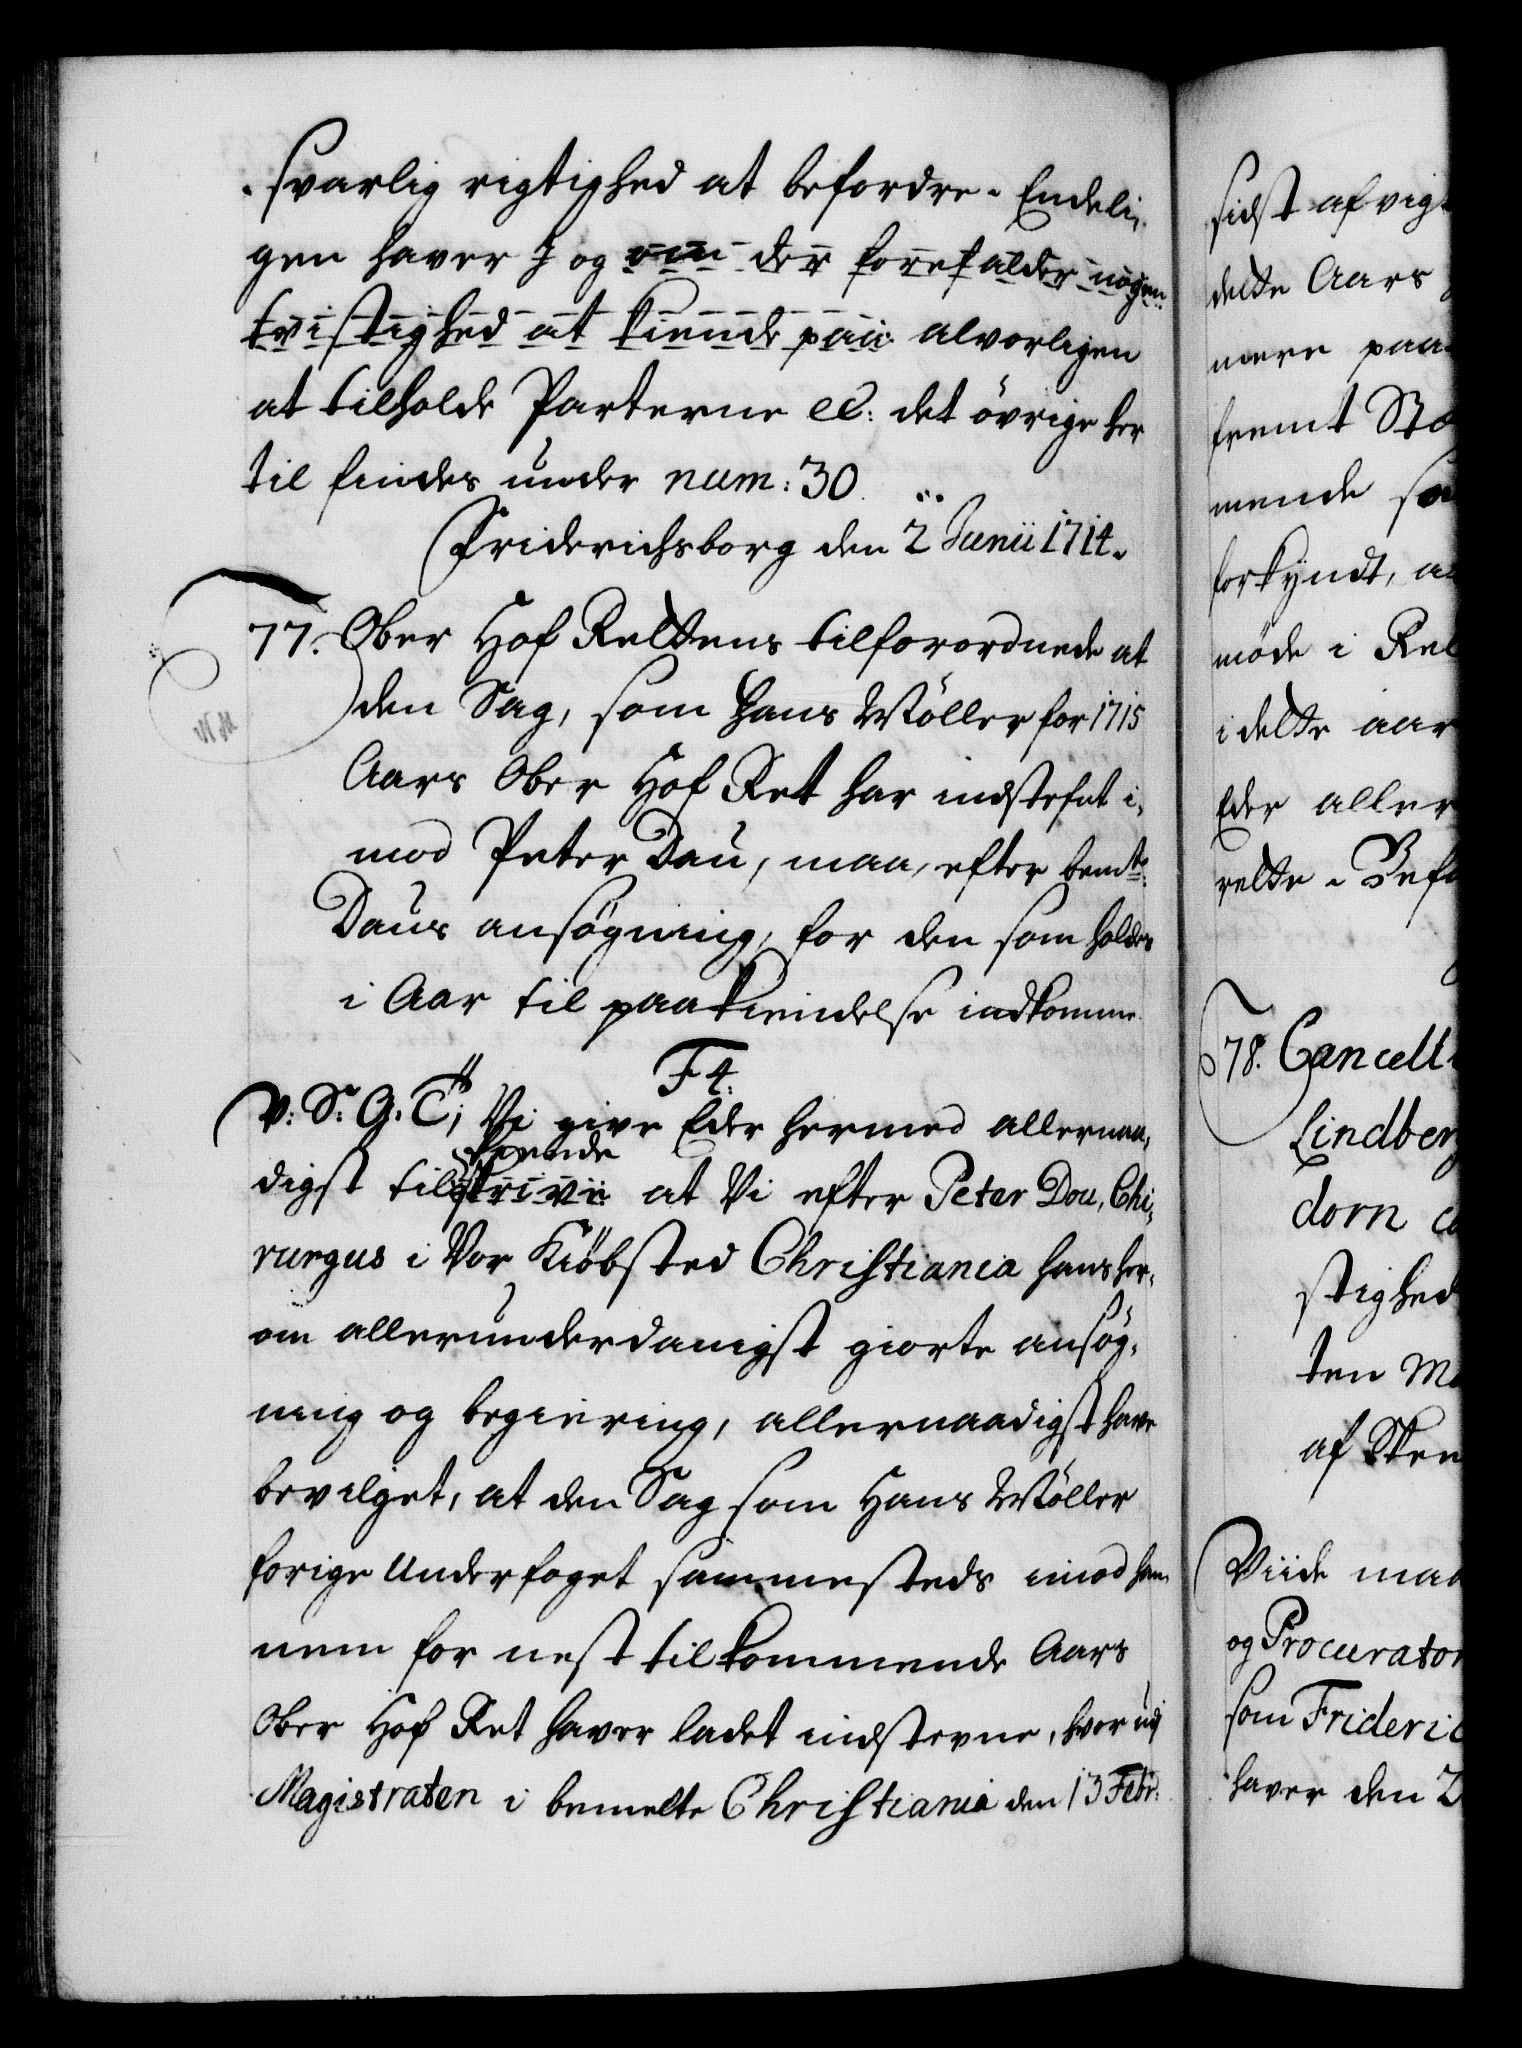 svarlig rigtighed at befordre. Endeli,
gen haver J og om der forefalder nogen
tvistighed at kiende paa alvorligen
at tilholde Parterne etc: det övrige her
til findes under num: 30.
Friderichsborg den 2 Junii 1714.
77. Ober Hof Rettens tilforordnede at
den Sag, som Hans Möller for 1715
Aars Ober Hof Ret har indstefnt i,
mod Peter Dau, maa, efter bemte
Daus ansögning, for den som holdes
i Aar til paakiendelse indkomme.
F4:
V: S: G: T; Vi give Eder hermed allernaa,
kiende
digst til at Vi efter Peter Dou, Chi,
rurgus i Vor Kiöbsted Christiania hans her,
om allerunderdanigst giorte ansög,
ning og begiering, allernaadigst have
bevilget, at den Sag som Hans Möller
forige Underfoget sammesteds imod han,
nem for nest tilkommende Aars
Ober Hof Ret haver ladet indstevne, hvor udj
Magistraten i bemelte Christiania den 13 Febr:
sidst afvig
dette Aars
mere paa
fremt St
mende so
forkyndt, a
möde i Ret
i dette aar
Eder aller
rette. Bef
78. Cancell
Lindber
dorn
stighed
ten M
af Sten
Viide maa
og Procurator
som Frideric
haver den 2